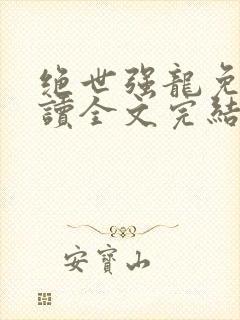 绝世强龍免
讀全文完結
安寶山